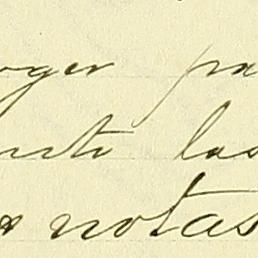 oger pa
nto las
notas